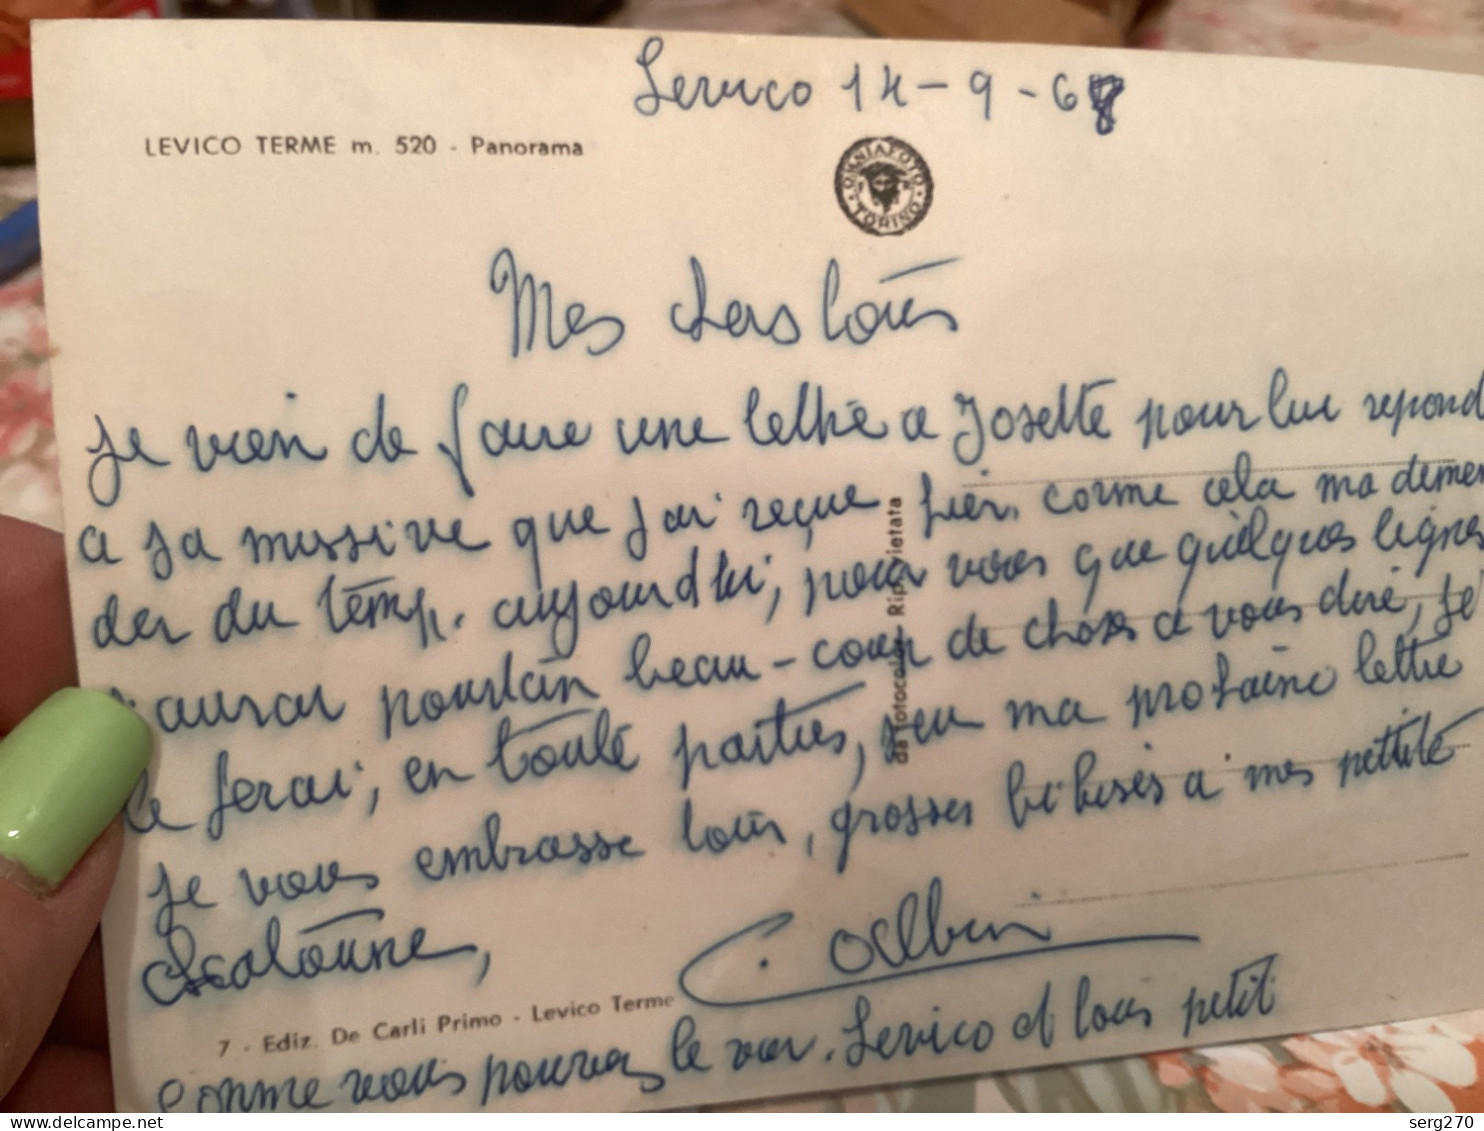 Levico 14-9-68
LEVICO TERME m. 520 - Panorama
OMNIAFOTO TORINO
Mes chers tous
Je vien de faire une lettre a Josette pour lui repond
a sa missive que j'ai reçue hier, comme cela ma demen
der du temp. aujourd'hui, pour vous que quelques lignes
aurai pourtan beau-coup de choses a vous dire, je
le ferai, en toute parties, sur ma prochaine lettre
Je vous embrasse tous, grosses bibises a mes petite
C. Albin
7 - Ediz. De Carli Primo - Levico Terme
Comme vous pourrez le voir. Levico et tous petit
da Fotocolor Riproduzione vietata
serg270